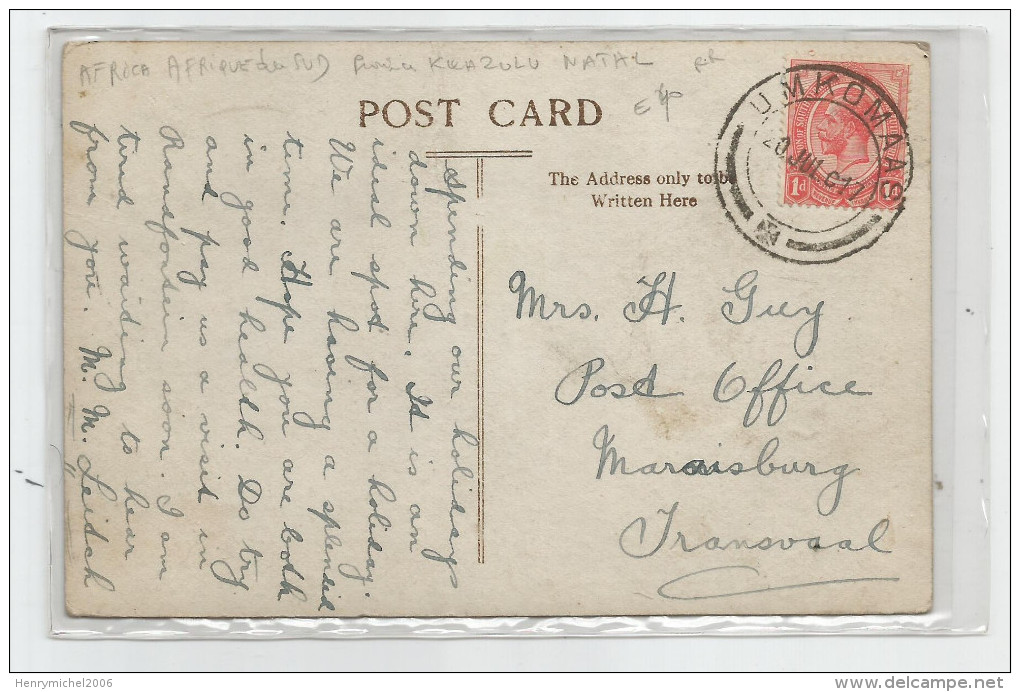 AFRICA AFRIQUE du SUD KWAZULU NATAL
POST CARD
The Address only to be
Written Here
UMKOMAAS
20 JUL
1d
Spending our holidays
down here. It is an
ideal spot for a holiday.
We are having a splendid
time. Hope you are both
in good health. Do try
and pay us a visit in
Randfontein soon. I am
tired waiting to hear
from you. M. M. Leitch
Mrs. H. Guy
Post Office
Maraisburg
Transvaal
Henrymichel2006
delcampe.net